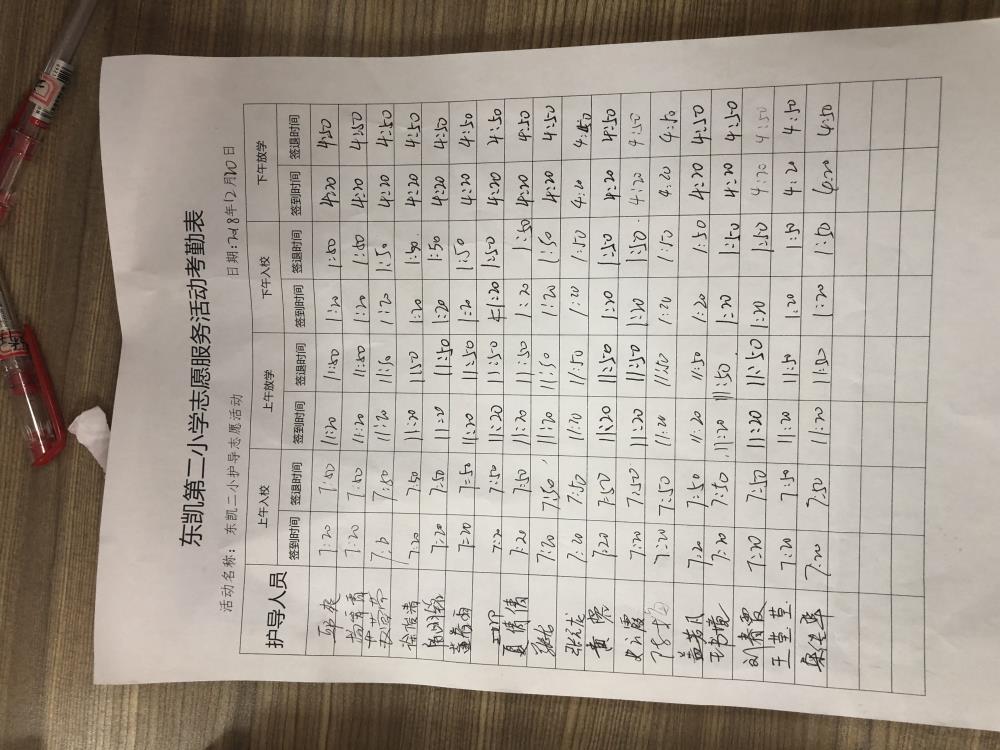 东凯第二小学志愿服务活动考勤表
活动名称：东凯二小护导志愿活动 日期:2018年12月20日
护导人员 上午入校 上午放学 下午入校 下午放学
签到时间 签退时间 签到时间 签退时间 签到时间 签退时间 签到时间 签退时间
7:20 7:50 11:20 11:50 1:20 1:50 4:20 4:50
7:20 7:50 11:20 11:50 1:20 1:50 4:20 4:50
7:50 11:20 11:50 1:20 1:50 4:20 4:50
徐俊清 7:20 7:50 11:20 1150 1:20 1:50 4:20 4:50
7:20 7:50 11:20 11:50 1:20 1:50 4:20 4:50
董春雨 7:20 7:50 11:20 11:50 1:20 1:50 4:20 4:50
7:20 7:50 11:20 11:50 1:20 1:50 4:20 4:50
夏倩倩 7:20 7:50 11:20 11:50 1:20 1:50 4:20 4:50
7:20 7:50 11:20 11:50 1:20 1:50 4:20 4:50
张元龙 7:20 7:50 11:20 11:50 1:20 1:50 4:20 4:50
7:20 7:50 11:20 11:50 1:20 1:50 4:20 4:50
7:20 7:50 11:20 11:50 1:20 1:50 4:20 4:50
7:20 7:50 11:20 11:50 1:20 1:50 4:20 4:50
7:20 7:50 11:20 11:50 1:20 1:50 4:20 4:50
7:20 7:50 11:20 11:50 1:20 1:50 4:20 4:50
刘春霞 7:20 7:50 11:20 11:50 1:20 1:50 4:20 4:50
王莹莹 7:20 7:50 11:20 11:50 1:20 1:50 4:20 4:50
7:20 7:50 11:20 11:50 1:20 1:50 4:20 4:50